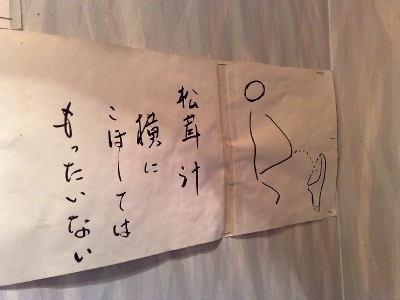 松茸汁
横に
こぼしては
もったいない